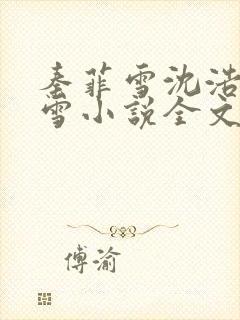 秦菲雪沈浩
雪小说全文
傅渝